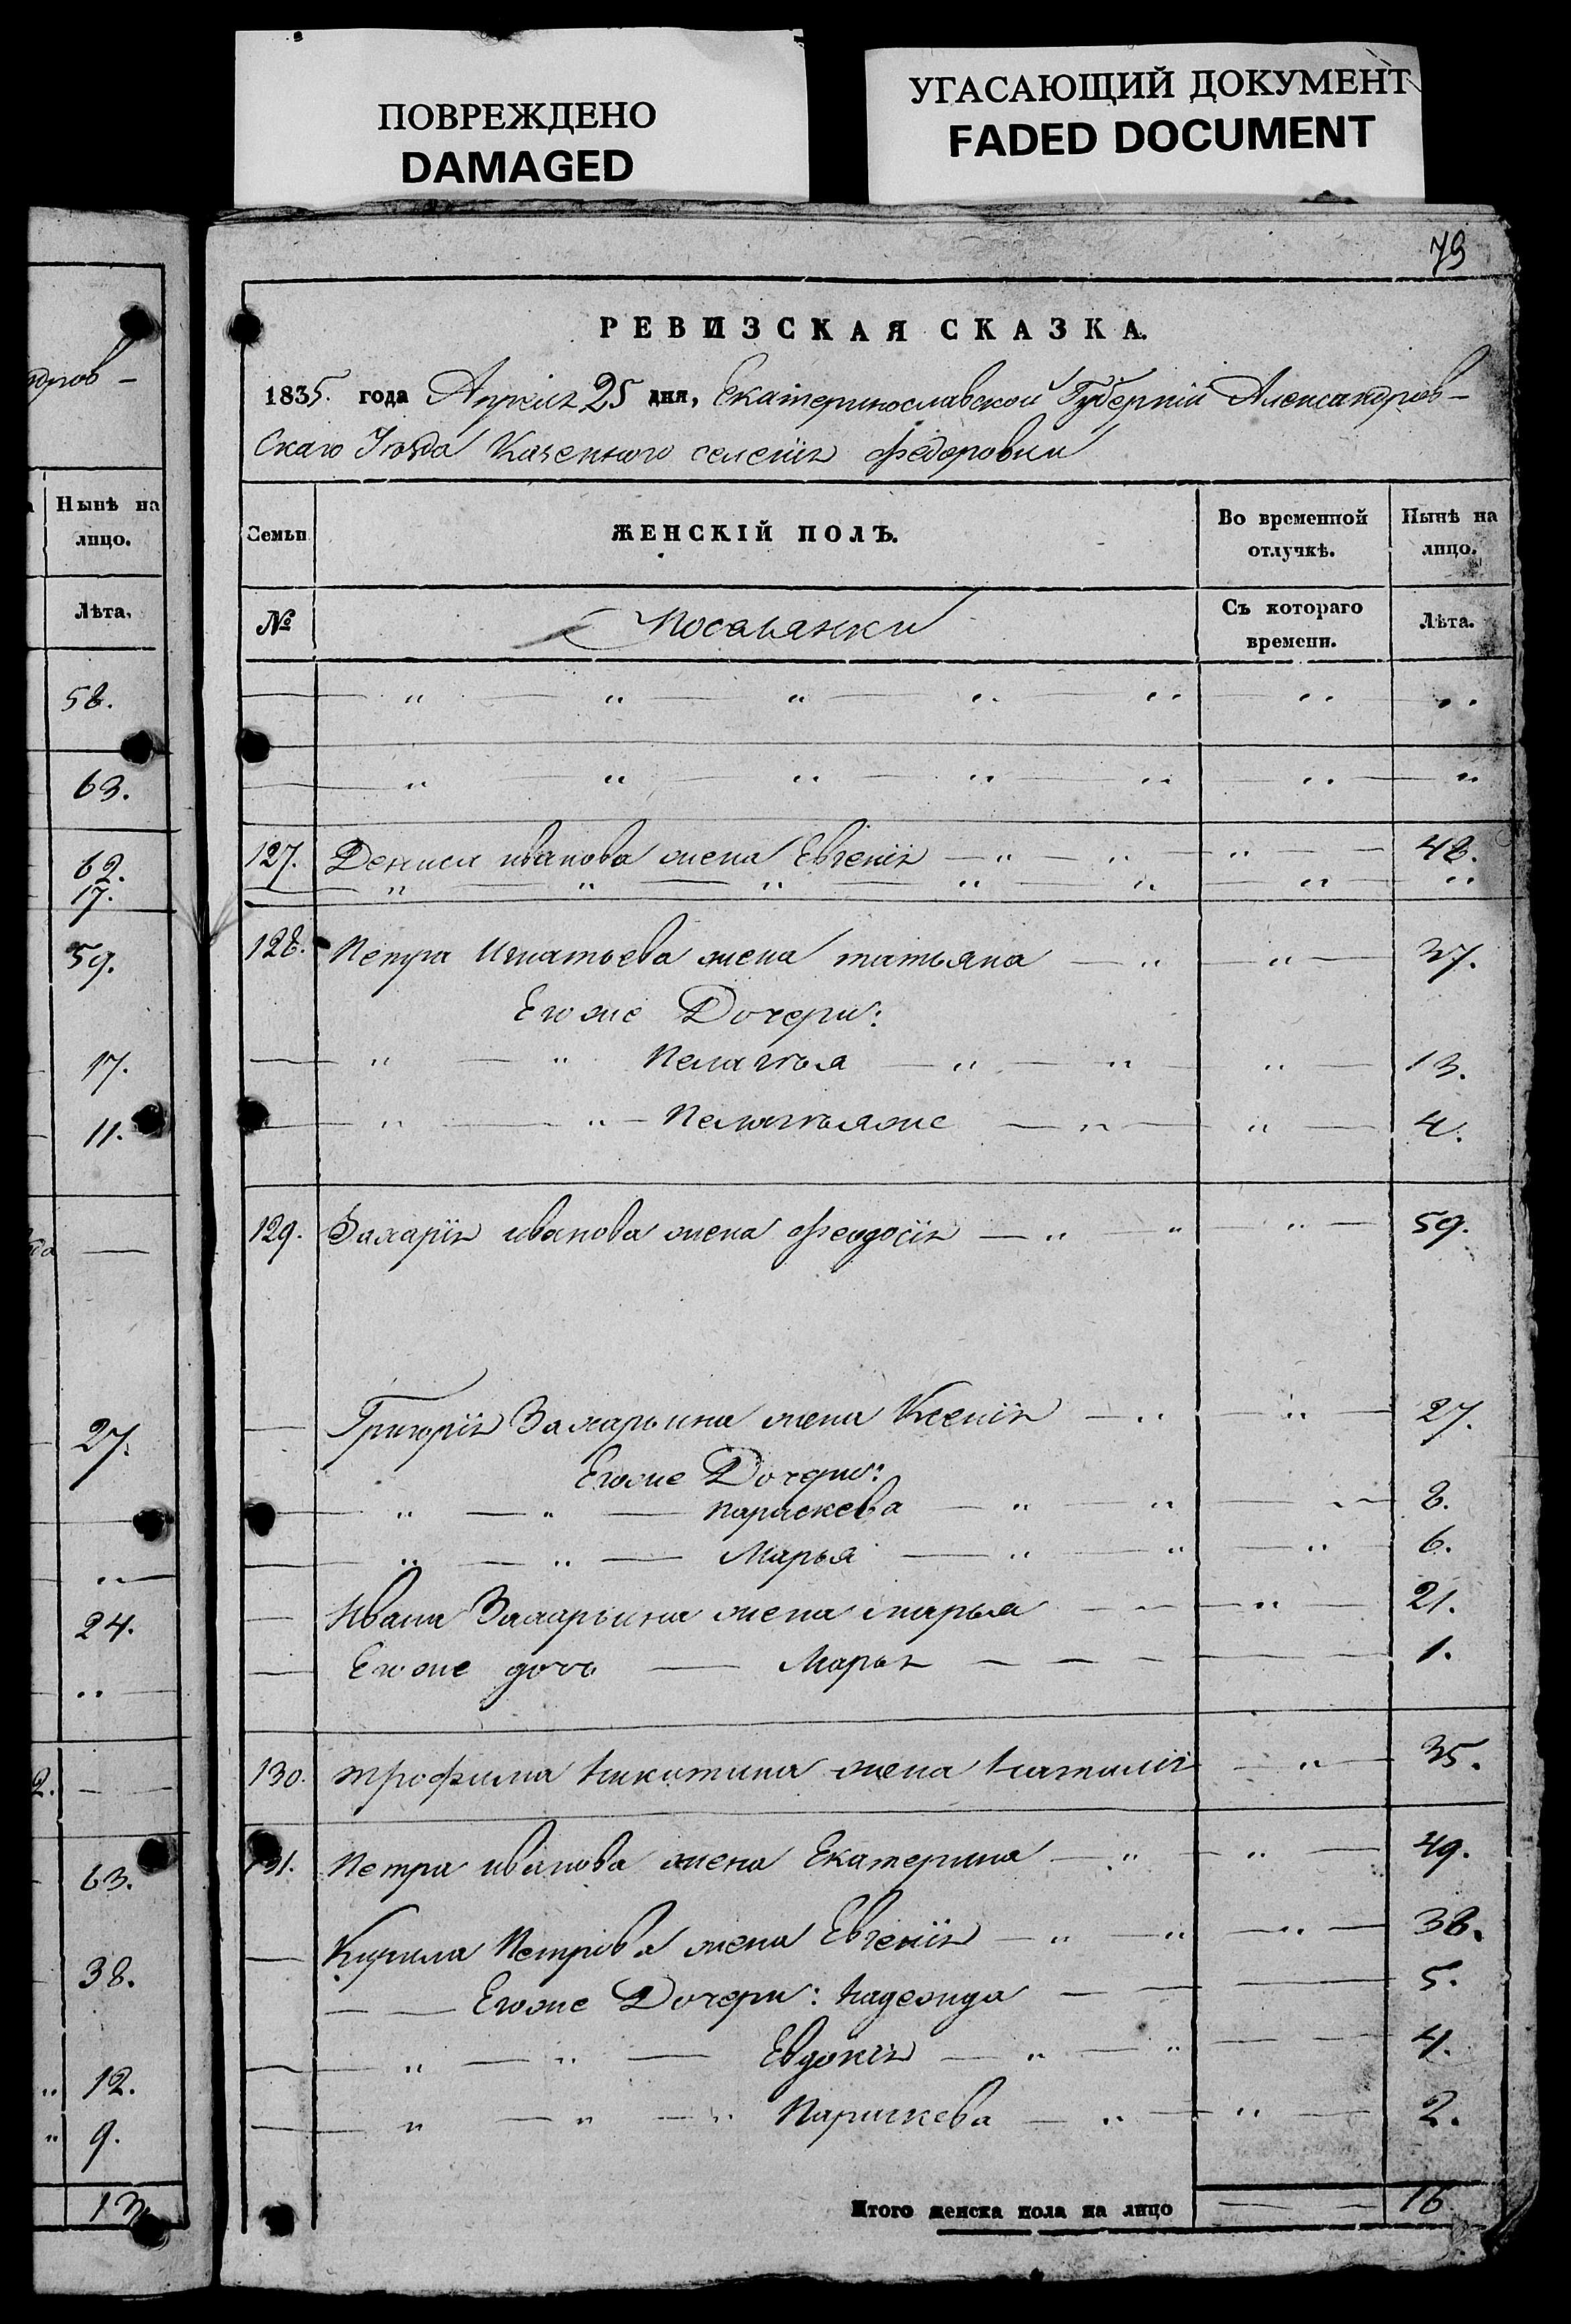 ПОВРЕЖДЕНО
DAMAGED
УГАСАЮЩИЙ ДОКУМЕНТ
FADED DOCUMENT
79
РЕВИЗСКАЯ СКАЗКА.
1835. года Апреля 25 дня, Екатеринославской Губернии Александров-
скаго Уезда Казенного селения Федоровки
Семьи
ЖЕНСКІЙ ПОЛЪ.
Во временной отлучкѣ.
Нынѣ на лицо.
№
Поселянки
Съ котораго времени.
Лѣта.
127. Дениса иванова жена Евгенія 48.
128. Петра Игнатьева жена татьяна 37.
Егоже Дочери:
Пелагѣя 13.
Пелагѣяже 4.
129. Захарія иванова жена Феодосія 59.
Григорія Захарьина жена Ксенія 27.
Егоже Дочери:
параскева 8.
Марья 6.
Ивана Захарьина жена марья 21.
Егоже дочь Марья 1.
130. трофима никитина жена наталія 35.
131. Петра иванова жена Екатерина 49.
Кирила Петрова жена Евгенія 38.
Егоже Дочери: надежда 5.
Евдокія 4.
Параскева 2.
Итого женска пола на лицо 16
Нынѣ на
лицо.
Лѣта.
58.
63.
62.
17.
59.
17.
11.
27.
24.
2.
63.
38.
12.
9.
13.